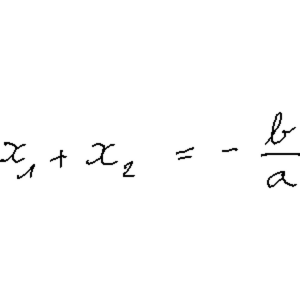 x₁ + x₂ = - b/a